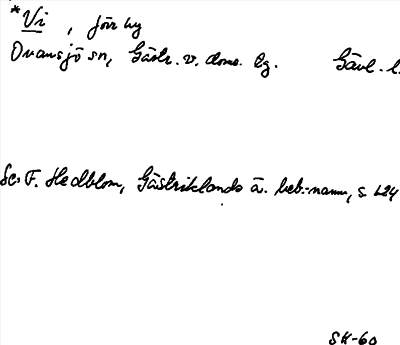 *Vi, förr by
Ovansjö sn, Gästr. v. doms. lg. Gävl. l.
Se: F. Hedblom, Gästriklands ä. beb.-namn, s 124
SH-60